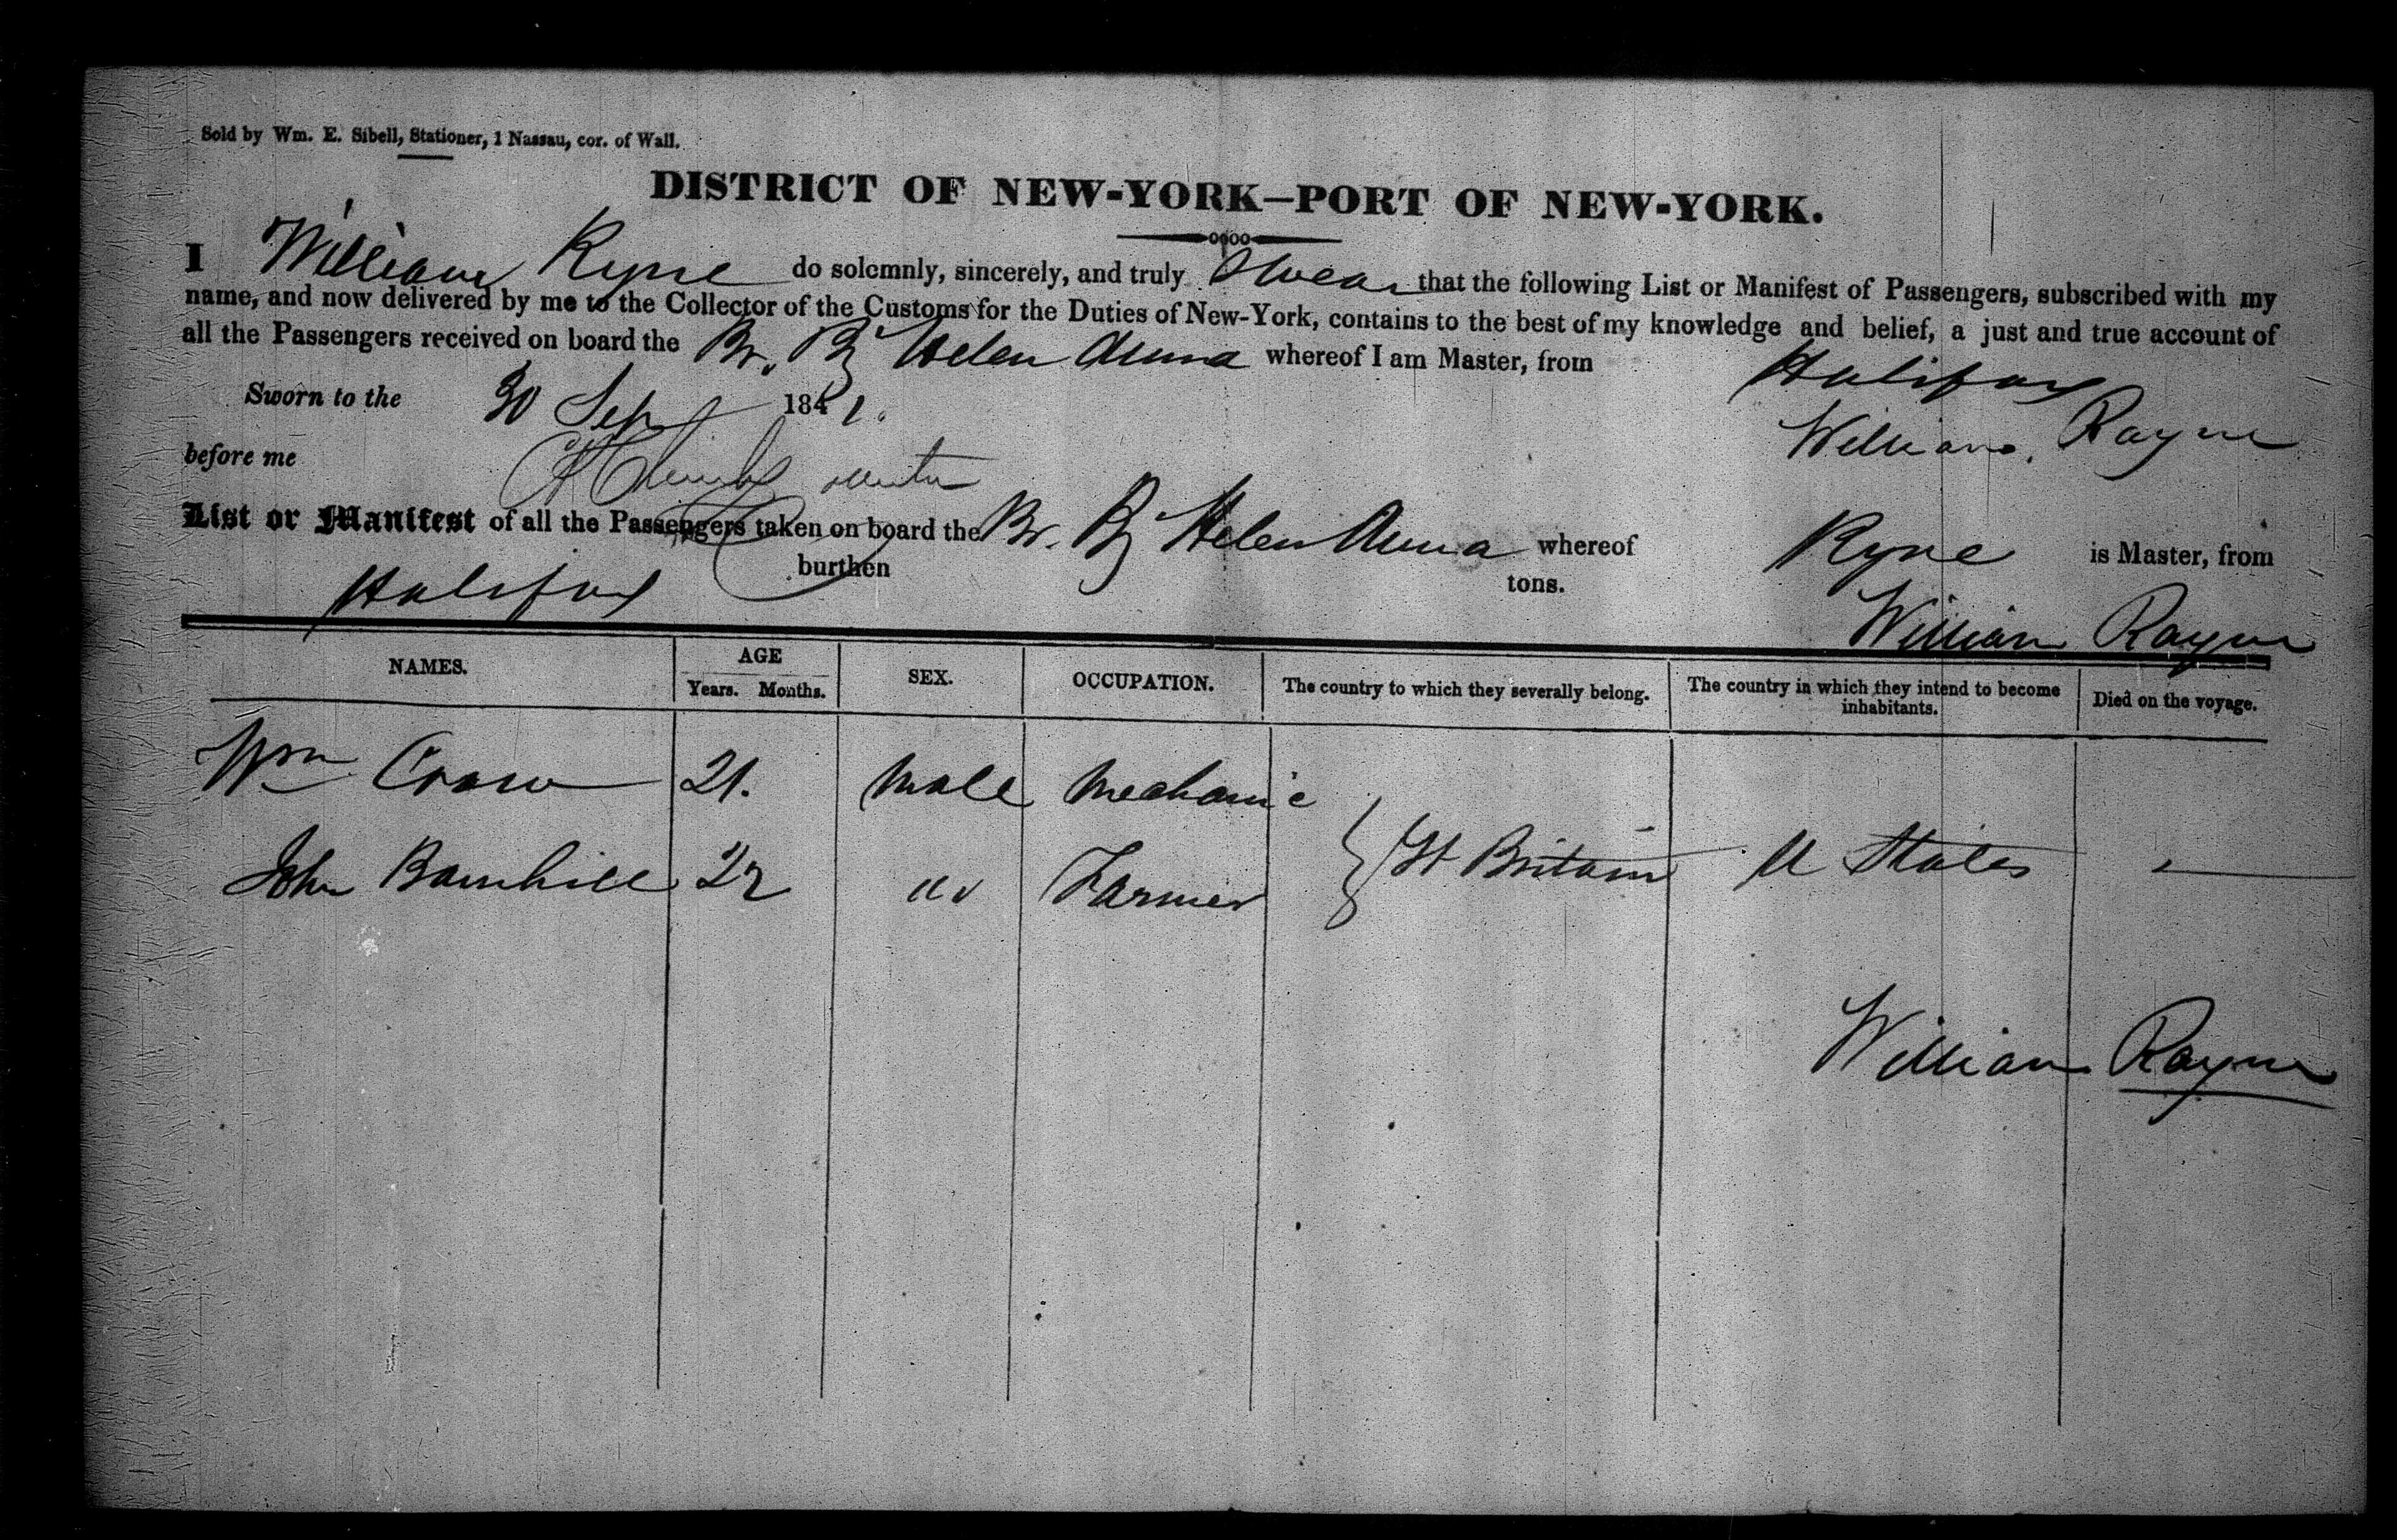 Sold by Wm. E. Sibell, Stationer, 1 Nassau, cor. of Wall.
DISTRICT OF NEW-YORK—PORT OF NEW-YORK.
I William Ryne do solemnly, sincerely, and truly Swear that the following List or Manifest of Passengers, subscribed with my
name, and now delivered by me to the Collector of the Customs for the Duties of New-York, contains to the best of my knowledge and belief, a just and true account of
all the Passengers received on board the Br. Bg Helen Anna whereof I am Master, from Halifax
Sworn to the 30 Sept 1841.
William Rayne
before me
List or Manifest of all the Passengers taken on board the Br. Bg Helen Anna whereof Ryne is Master, from
Halifax burthen tons.
William Rayne
NAMES. AGE Years. Months. SEX. OCCUPATION. The country to which they severally belong. The country in which they intend to become inhabitants. Died on the voyage.
Wm Crow 21. Male Mechanic
John Barnhill 22 " " Farmer Gt Britain U States —
William Rayne